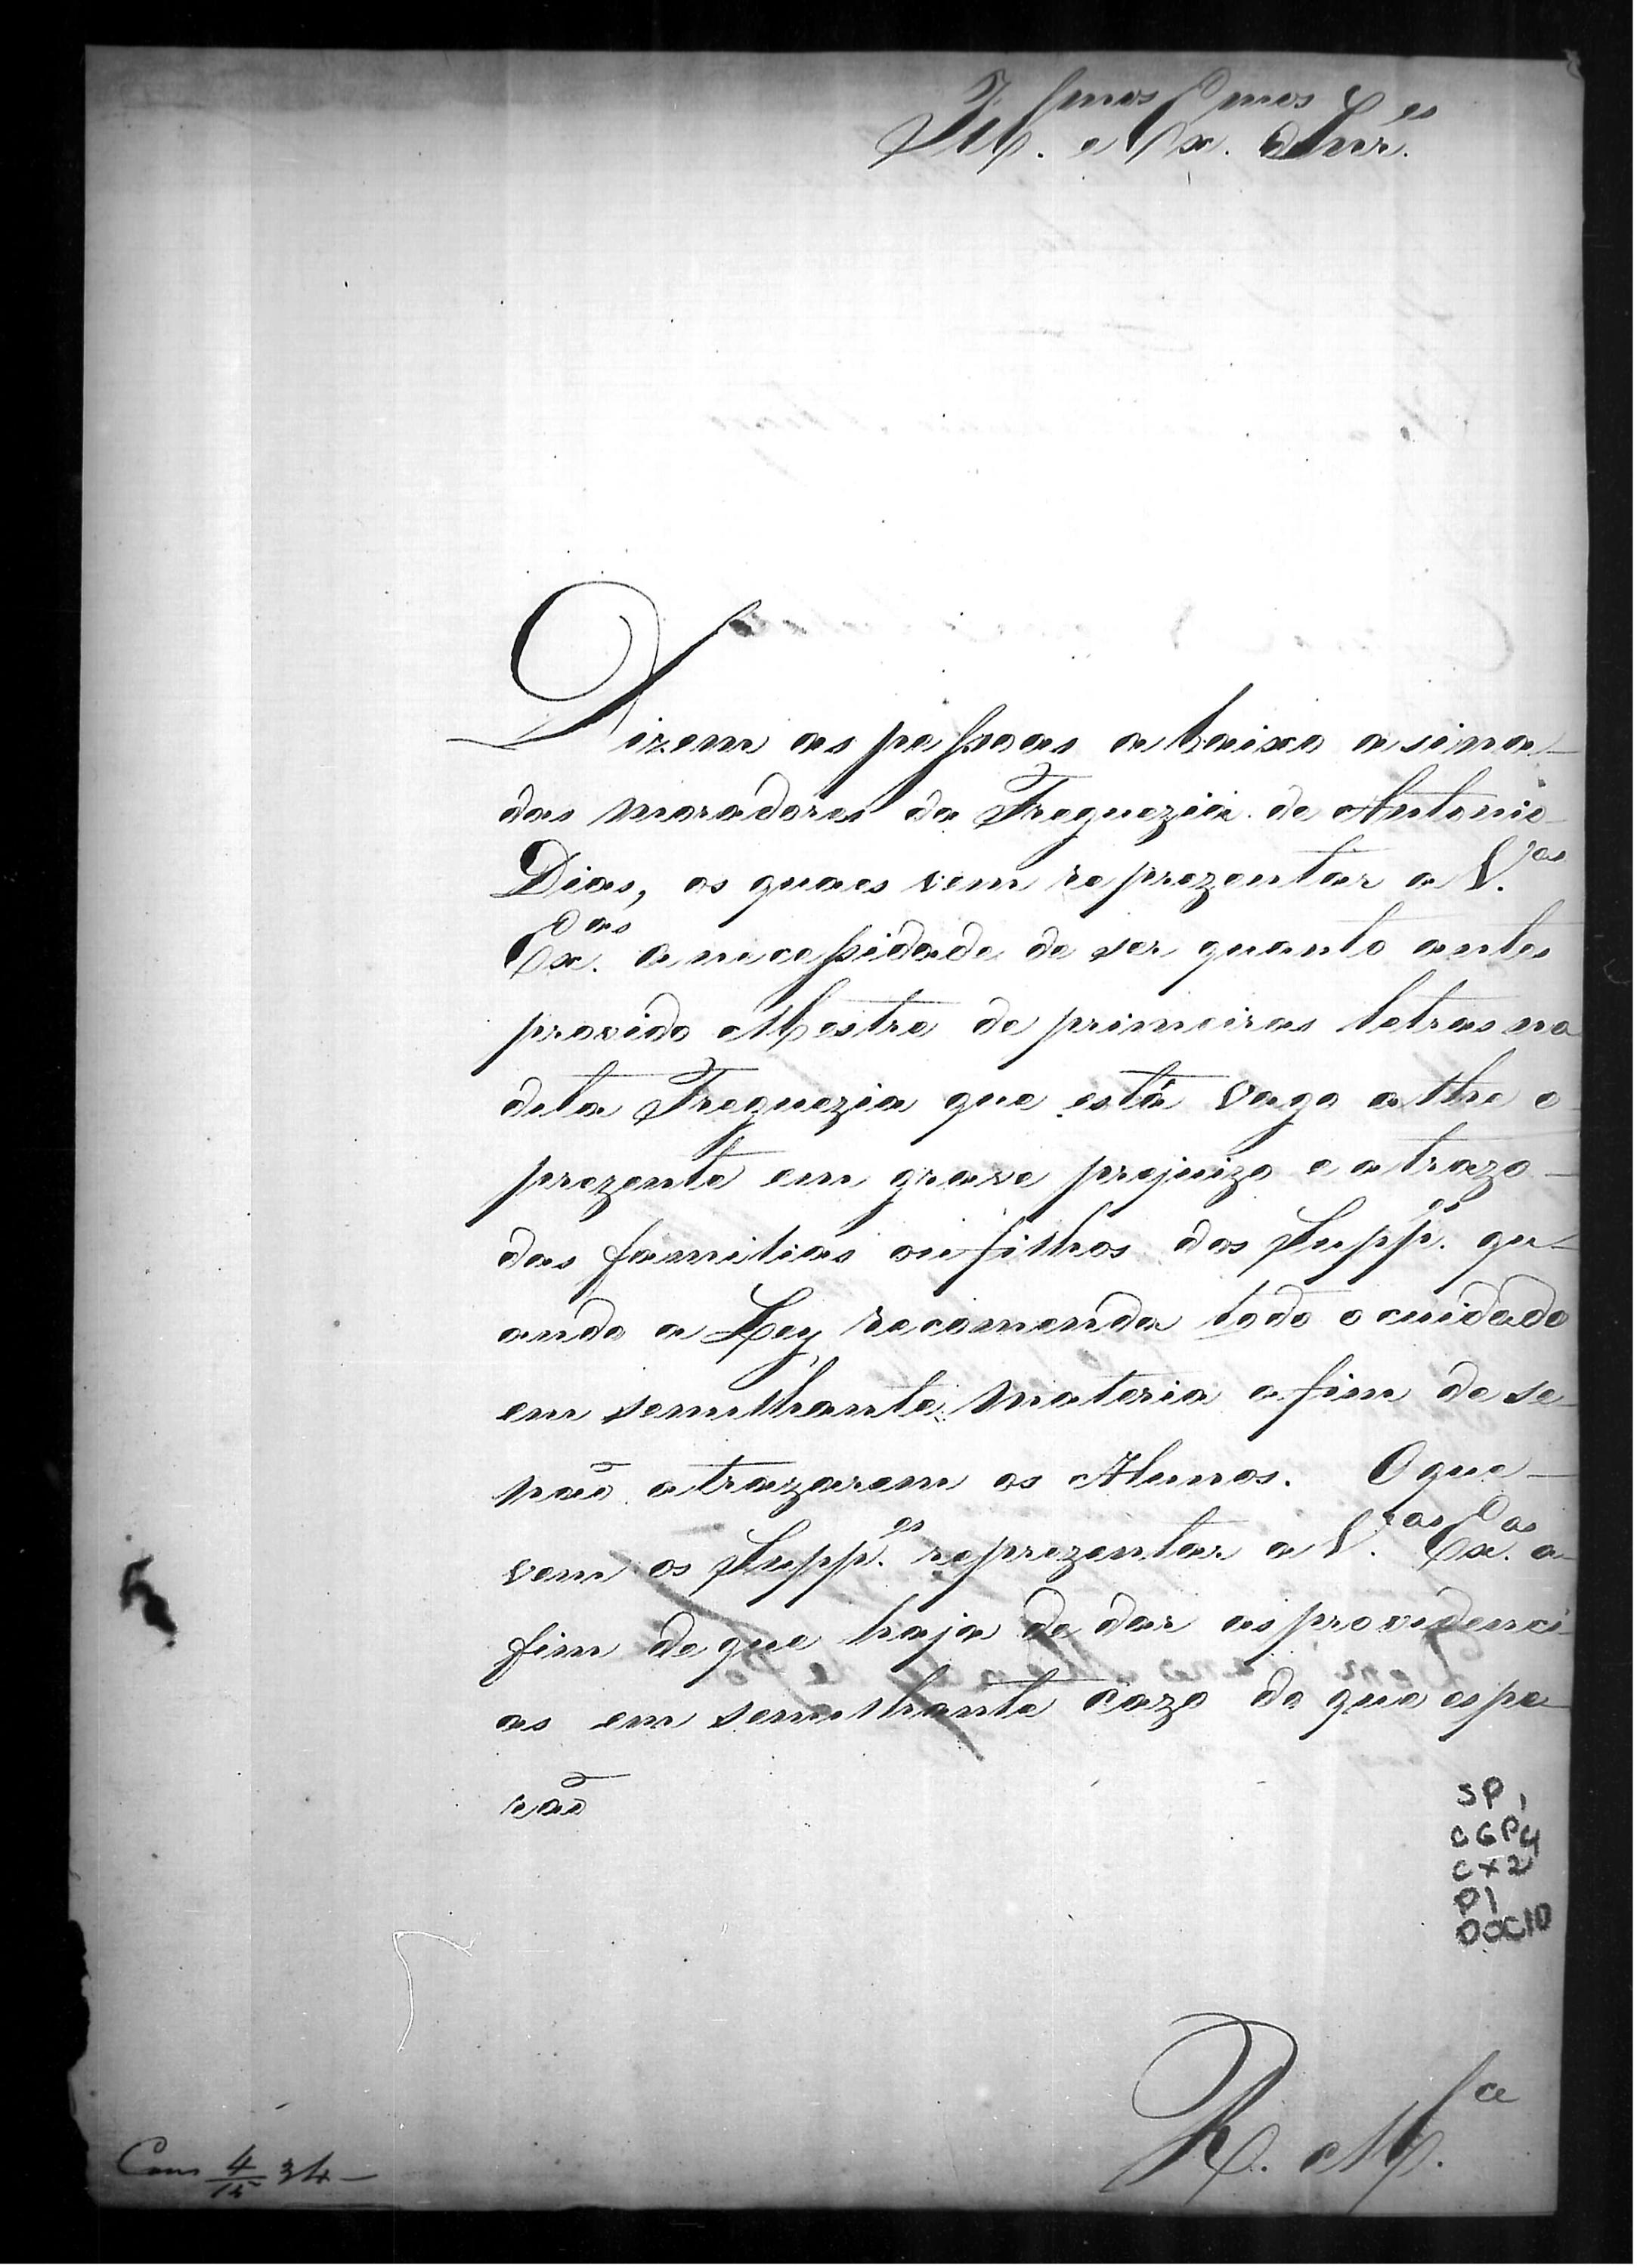 Ill.mos e Ex.mos Snr.es
Dizem as pessoas abaixo asina-
das moradores da Freguezia de Antonio
Dias, os quaes vem reprezentar a V.as
Ex.as a necessidade de ser quanto antes
provido Mestre de primeiras letras na
deta Freguezia que está vago athe o
prezente em grave prejuizo e atrazo
das familias ou filhos dos Supp.es qu-
ando a Ley recomenda todo o cuidado
em semilhante materia afim de se
não atrazarem os Alunos. O que
vem os Supp.es reprezentar a V.as Ex.as a-
fim de que haja de dar as providenci-
as em semilhante cazo do que espe-
rão
SP
CGP4
CX2
P1
DOC10
R. M.ce
4/15 34